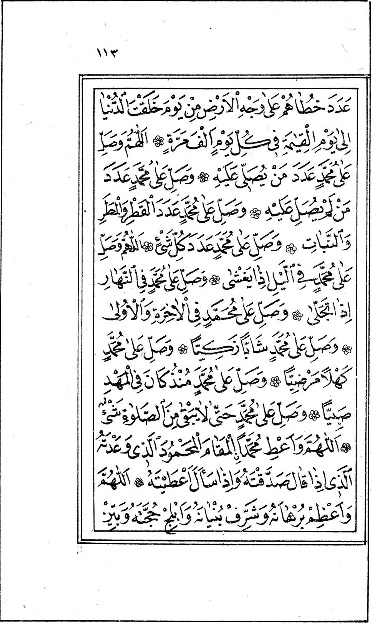 ١١٣
عَدَدَ خُطَاهُمْ عَلَى وَجْهِ الْاَرْضِ مِنْ يَوْمِ خَلَقْتَ الدُّنْيَا
اِلَى يَوْمِ الْقِيٰمَةِ فِى كُلِّ يَوْمٍ اَلْفَ مَرَّةٍ ۞ اَللّٰهُمَّ وَصَلِّ
عَلَى مُحَمَّدٍ عَدَدَ مَنْ يُصَلِّى عَلَيْهِ ۞ وَصَلِّ عَلَى مُحَمَّدٍ عَدَدَ
مَنْ لَمْ يُصَلِّ عَلَيْهِ ۞ وَصَلِّ عَلَى مُحَمَّدٍ عَدَدَ الْقَطْرِ وَالْمَطَرِ
وَالنَّبَاتِ ۞ وَصَلِّ عَلَى مُحَمَّدٍ عَدَدَ كُلِّ شَىْءٍ ۞ اَللّٰهُمَّ وَصَلِّ
عَلَى مُحَمَّدٍ فِى الَّيْلِ اِذَا يَغْشٰى ۞ وَصَلِّ عَلَى مُحَمَّدٍ فِى النَّهَارِ
اِذَا تَجَلّٰى ۞ وَصَلِّ عَلَى مُحَمَّدٍ فِى الْاٰخِرَةِ وَالْاُولٰى
۞ وَصَلِّ عَلَى مُحَمَّدٍ شَابًّا زَكِيًّا ۞ وَصَلِّ عَلَى مُحَمَّدٍ
كَهْلًا مَرْضِيًّا ۞ وَصَلِّ عَلَى مُحَمَّدٍ مُنْذُ كَانَ فِى الْمَهْدِ
صَبِيًّا ۞ وَصَلِّ عَلَى مُحَمَّدٍ حَتّٰى لَا يَبْقٰى مِنَ الصَّلٰوةِ شَىْءٌ
۞ اَللّٰهُمَّ وَاَعْطِ مُحَمَّدًا اِلْمَقَامَ الْمَحْمُودَ الَّذِى وَعَدْتَهُ
الَّذِى اِذَا قَالَ صَدَّقْتَهُ وَاِذَا سَأَلَ اَعْطَيْتَهُ ۞ اَللّٰهُمَّ
وَاَعْظِمْ بُرْهَانَهُ وَشَرِّفْ بُنْيَانَهُ وَاَبْلِجْ حُجَّتَهُ وَبَيِّنْ